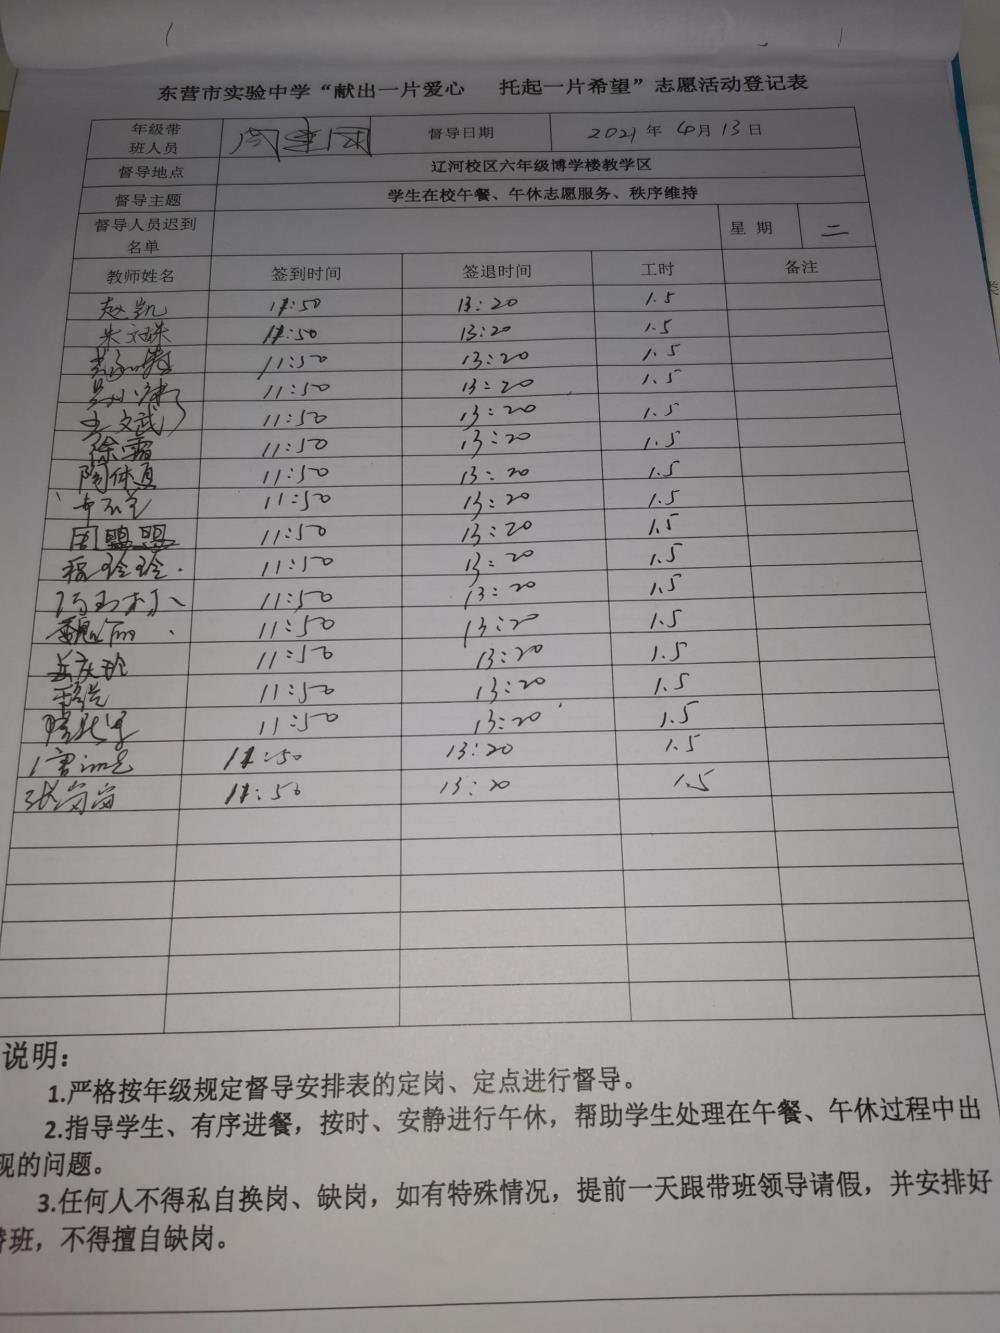 东营市实验中学“献出一片爱心 托起一片希望”志愿活动登记表
年级带班人员 督导日期 2021年4月13日
督导地点 辽河校区六年级博学楼教学区
督导主题 学生在校午餐、午休志愿服务、秩序维持
督导人员迟到名单 星期 二
教师姓名 签到时间 签退时间 工时 备注
赵凯 11:50 13:20 1.5
11:50 13:20 1.5
11:50 13:20 1.5
11:50 13:20 1.5
王文武 11:50 13:20 1.5
徐霜 11:50 13:20 1.5
陶休夏 11:50 13:20 1.5
11:50 13:20 1.5
周盟盟 11:50 13:20 1.5
程玲玲 11:50 13:20 1.5
11:50 13:20 1.5
魏丽 11:50 13:20 1.5
11:50 13:20 1.5
11:50 13:20 1.5
11:50 13:20 1.5
11:50 13:20 1.5
张岗岗 11:50 13:20 1.5
说明：
1.严格按年级规定督导安排表的定岗、定点进行督导。
2.指导学生、有序进餐，按时、安静进行午休，帮助学生处理在午餐、午休过程中出
现的问题。
3.任何人不得私自换岗、缺岗，如有特殊情况，提前一天跟带班领导请假，并安排好
替班，不得擅自缺岗。